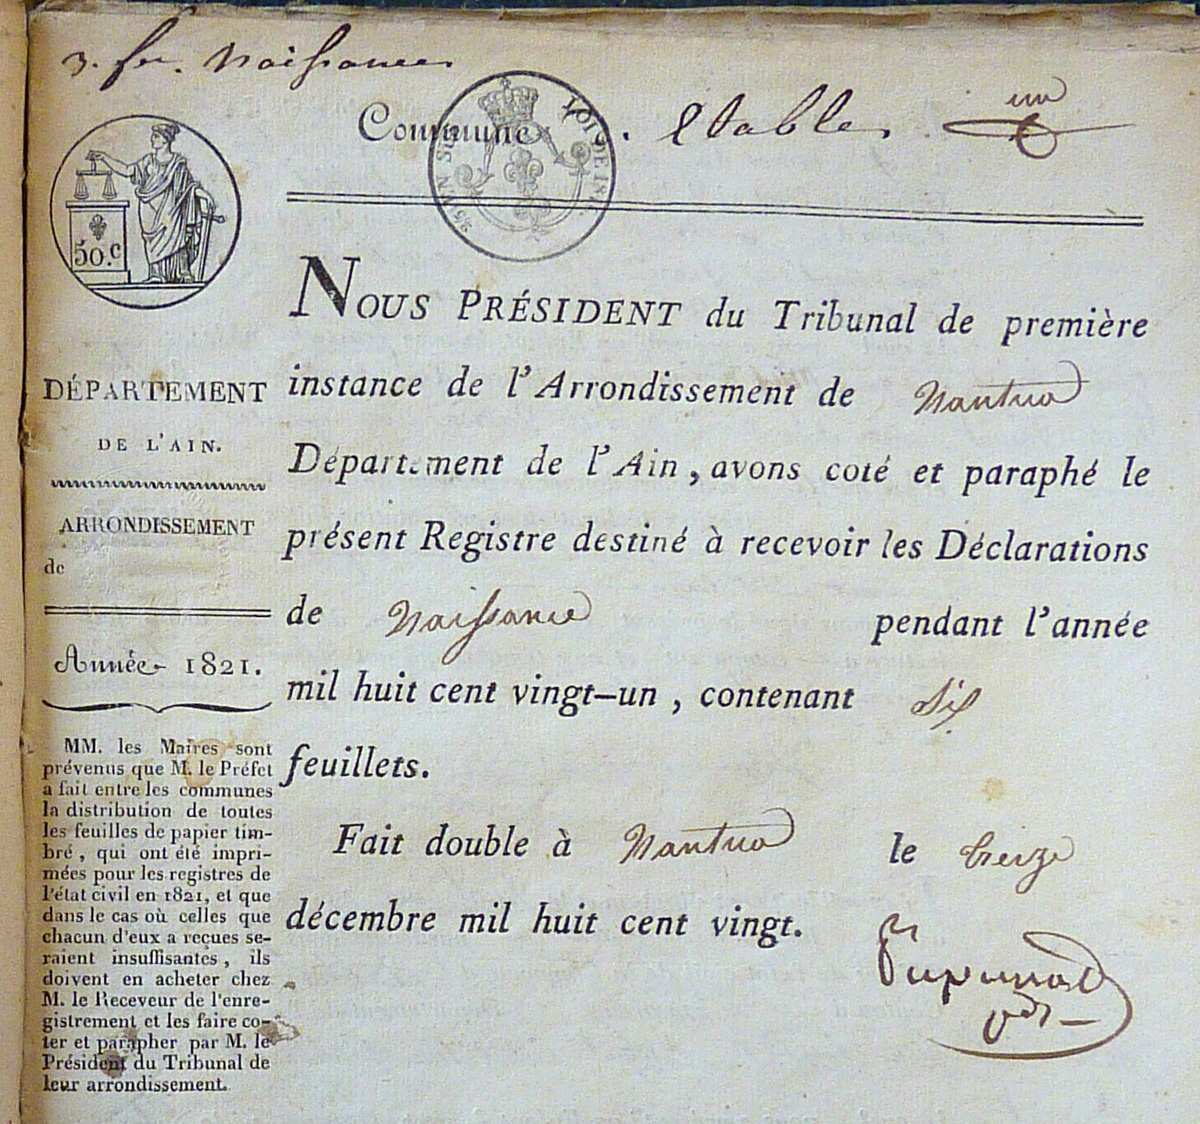 3. fr. Naissances
Commune . Etables
50.c
LOI DE
DÉPARTEMENT
DE L'AIN.
ARRONDISSEMENT
de
Année 1821.
MM. les Maires sont
prévenus que M. le Préfet
a fait entre les communes
la distribution de toutes
les feuilles de papier tim-
bré, qui ont été impri-
mées pour les registres de
l'état civil en 1821, et que
dans le cas où celles que
chacun d'eux a reçues se-
raient insuffisantes, ils
doivent en acheter chez
M. le Receveur de l'enre-
gistrement et les faire co-
ter et parapher par M. le
Président du Tribunal de
leur arrondissement.
NOUS PRÉSIDENT du Tribunal de première
instance de l'Arrondissement de Nantua
Département de l'Ain, avons coté et paraphé le
présent Registre destiné à recevoir les Déclarations
de Naissance pendant l'année
mil huit cent vingt-un, contenant Six
feuillets.
Fait double à Nantua le treize
décembre mil huit cent vingt.